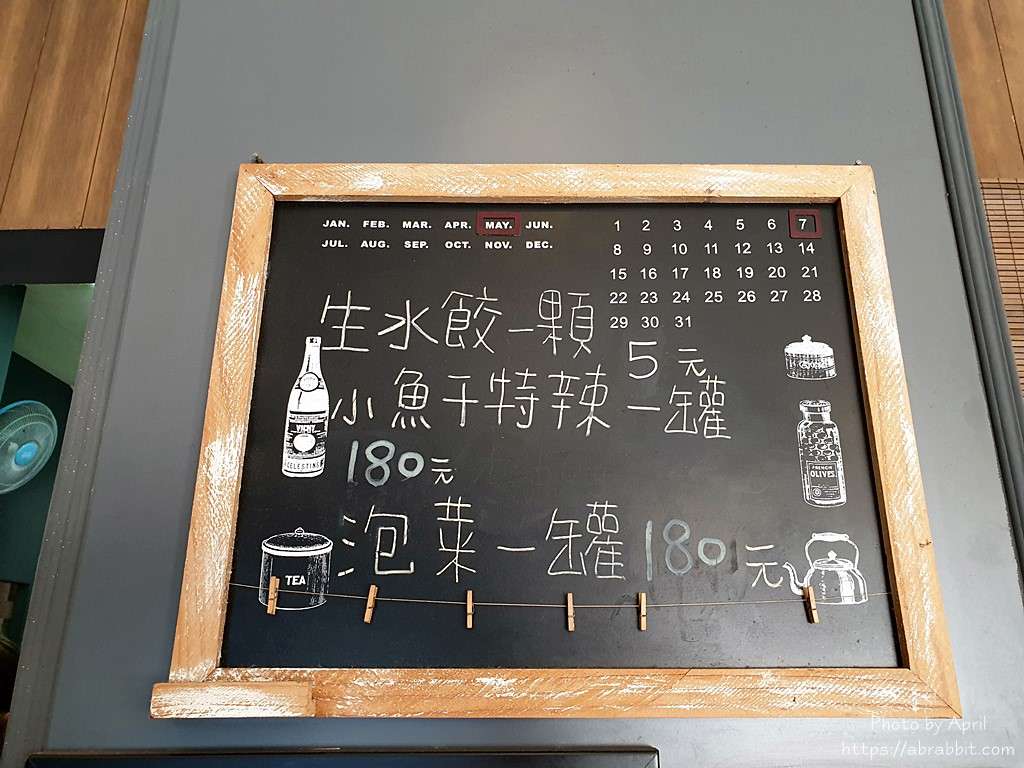 JAN. FEB. MAR. APR. MAY. JUN.
JUL. AUG. SEP. OCT. NOV. DEC.
1 2 3 4 5 6 7
8 9 10 11 12 13 14
15 16 17 18 19 20 21
22 23 24 25 26 27 28
29 30 31
生水餃一顆
5元
小魚干特辣一罐
180元
泡菜一罐180元
CELESTINS
FRENCH
OLIVES
TEA
Photo by April
https://abrabbit.com